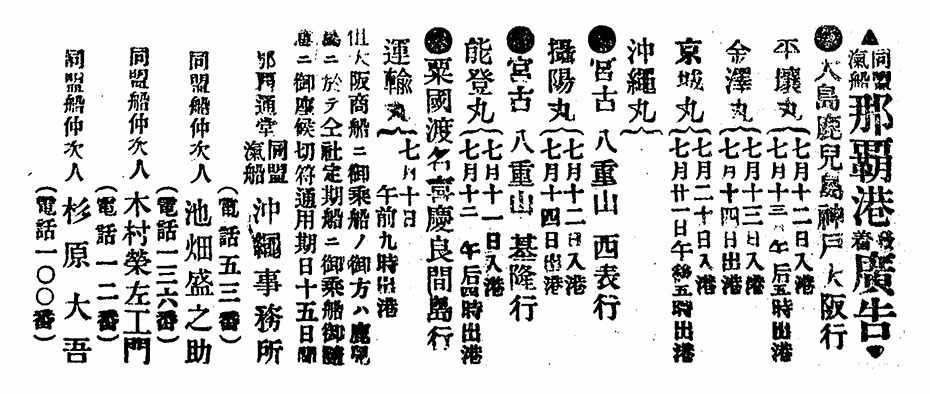 ▲同盟汽船那覇港発着廣告▼
●大島鹿兒島神戸大阪行
平壤丸
七月十二日入港
七月十三日午后五時出港
金澤丸
七月十三日入港
七月十四日出港
京城丸
七月二十日入港
七月廿一日午後五時出港
沖繩丸
●宮古八重山西表行
攝陽丸
七月十二日入港
七月十四日出港
●宮古八重山基隆行
能登丸
七月十一日入港
七月十二日午后四時出港
●粟國渡名喜慶良間島行
運輸丸
七月十日
午前九時出港
但大阪商船ニ御乘船ノ御方ハ鹿児
島ニ於テ仝社定期船ニ御乘船御隨
意ニ御座候切符通用期日十五日間
那覇通堂
同盟汽船沖繩事務所
(電話五三番)
同盟船仲次人 池畑盛之助
(電話一三六番)
同盟船仲次人 木村榮左工門
(電話一二番)
同盟船仲次人 杉原大吾
(電話一〇〇番)